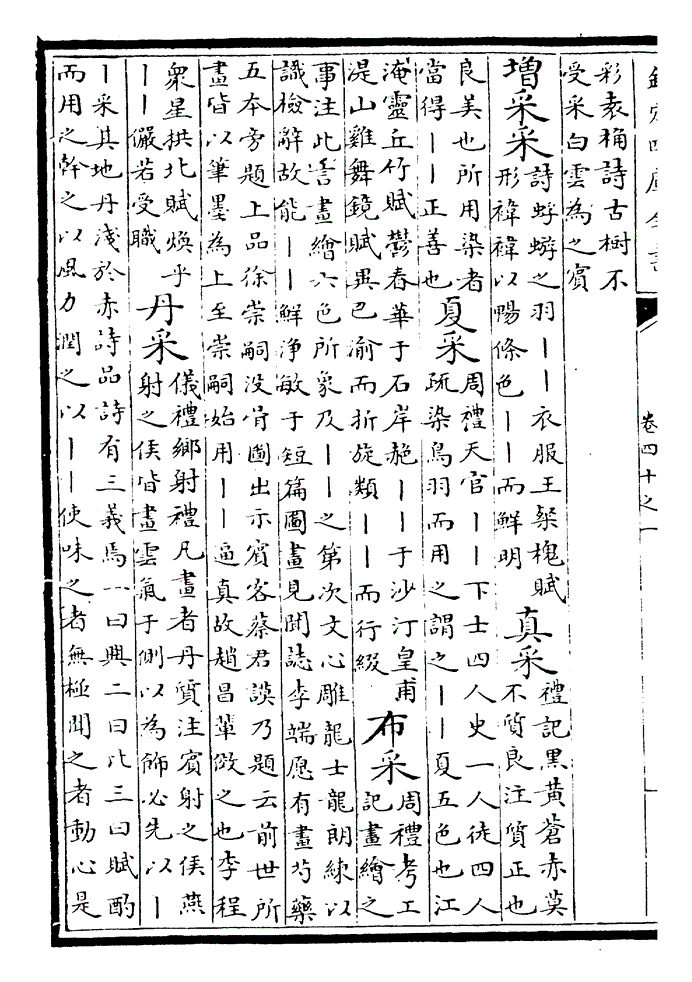 欽定四庫全書
卷四十之一
彩袁桷詩古樹不
受采白雲為之賓
增采采
詩蜉蝣之羽丨丨衣服王粲槐賦
形禕禕以暢條色丨丨而鮮明
真采
禮記黑黃蒼赤莫
不質良注質正也
良美也所用染者
當得丨丨正善也
夏采
周禮天官丨丨下士四人史一人徒四人
疏染鳥羽而用之謂之丨丨夏五色也江
淹靈丘竹賦鬱春華于石岸赩丨丨于沙汀皇甫
湜山雞舞鏡賦異巴渝而折旋類丨丨而行綴
布采
周禮考工
記畫繪之
事注此言畫繪六色所象及丨丨之第次文心雕龍士龍朗練以
識檢辭故能丨丨鮮淨敏于短篇圖畫見聞誌李端愿有畫芍藥
五本旁題上品徐崇嗣没骨圖出示賓客蔡君謨乃題云前世所
畫皆以筆墨為上至崇嗣始用丨丨逼真故趙昌輩傚之也李程
衆星拱北賦煥乎
丨丨儼若受職
丹采
儀禮鄉射禮凡畫者丹質注賓射之侯燕
射之侯皆畫雲氣于側以為飾必先以丨
丨采其地丹淺於赤詩品詩有三義焉一曰興二曰比三曰賦酌
而用之幹之以風力潤之以丨丨使味之者無極聞之者動心是